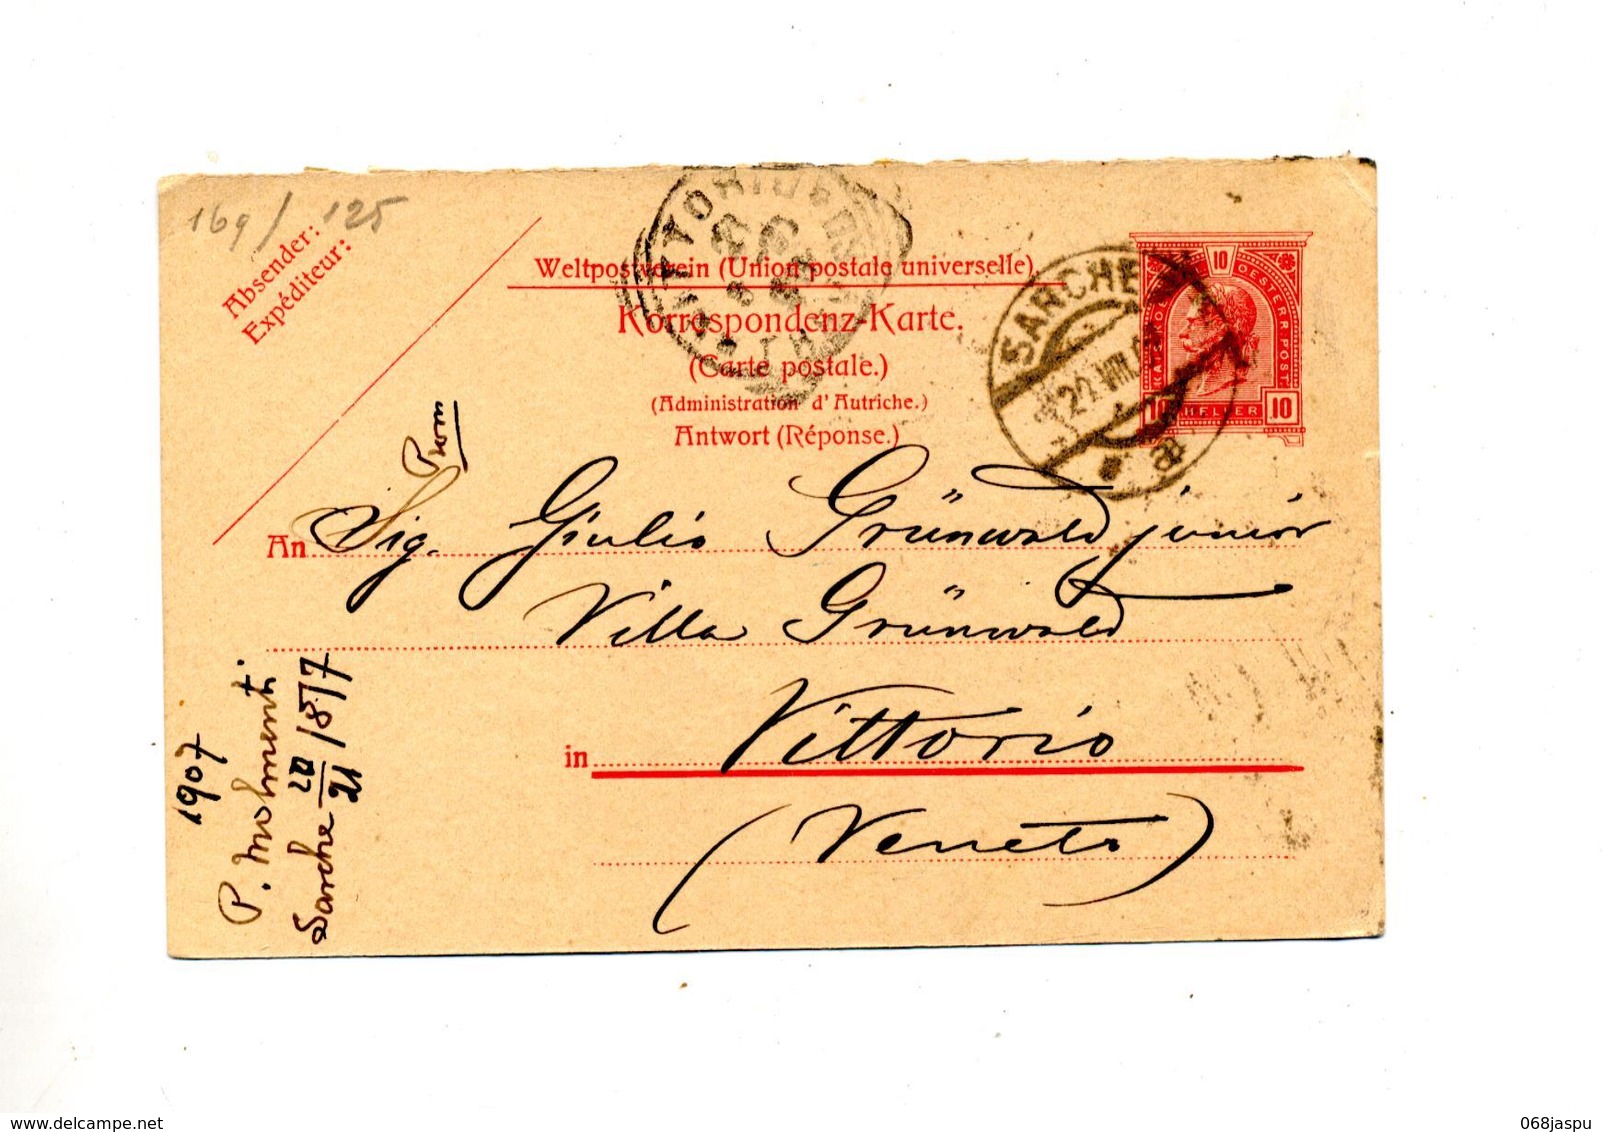 169/125
Absender:
Expéditeur:
Weltpostverein (Union postale universelle).
Korrespondenz-Karte.
(Carte postale.)
(Administration d'Autriche.)
Antwort (Réponse.)
SARCHE
22.VIII.
a
10
KAIS. KOE. OESTERR. POST
10 HELLER 10
VITTORIO
Prom
An Sig. Giulio Grünwald junior
Villa Grünwald
in Vittorio
(Veneto)
1907
P. Molmenti
Sarche 20/21 / 8 / 7
068jaspu